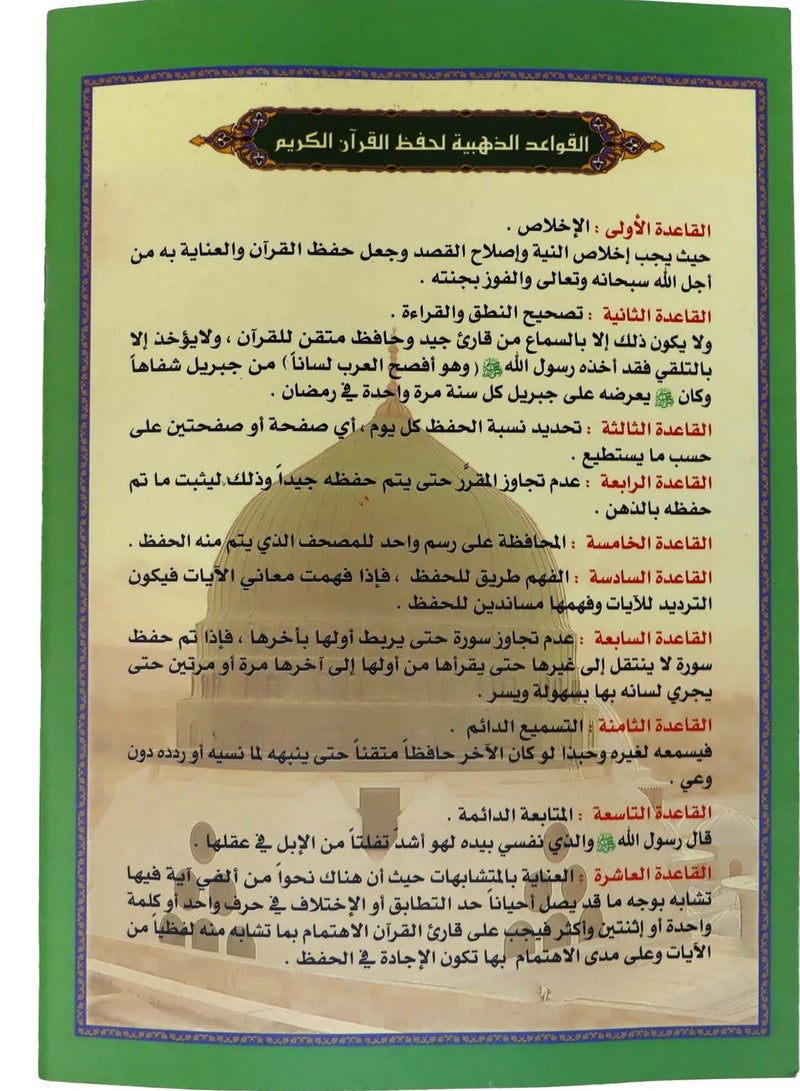 القواعد الذهبية لحفظ القرآن الكريم
القاعدة الأولى : الإخلاص .
حيث يجب إخلاص النية وإصلاح القصد وجعل حفظ القرآن والعناية به من
أجل الله سبحانه وتعالى والفوز بجنته .
القاعدة الثانية : تصحيح النطق والقراءة .
ولا يكون ذلك إلا بالسماع من قارئ جيد وحافظ متقن للقرآن ، ولايؤخذ إلا
بالتلقي فقد أخذه رسول الله ﷺ ( وهو أفصح العرب لساناً ) من جبريل شفاهاً
وكان ﷺ يعرضه على جبريل كل سنة مرة واحدة في رمضان .
القاعدة الثالثة : تحديد نسبة الحفظ كل يوم ، أي صفحة أو صفحتين على
حسب ما يستطيع .
القاعدة الرابعة : عدم تجاوز المقرَّر حتى يتم حفظه جيداً وذلك ليثبت ما تم
حفظه بالذهن .
القاعدة الخامسة : المحافظة على رسم واحد للمصحف الذي يتم منه الحفظ .
القاعدة السادسة : الفهم طريق للحفظ ، فإذا فهمت معاني الآيات فيكون
الترديد للآيات وفهمها مساندين للحفظ .
القاعدة السابعة : عدم تجاوز سورة حتى يربط أولها بأخرها ، فإذا تم حفظ
سورة لا ينتقل إلى غيرها حتى يقرأها من أولها إلى آخرها مرة أو مرتين حتى
يجري لسانه بها بسهولة ويسر .
القاعدة الثامنة : التسميع الدائم .
فيسمعه لغيره وحبذا لو كان الآخر حافظاً متقناً حتى ينبهه لما نسيه أو ردده دون
وعي .
القاعدة التاسعة : المتابعة الدائمة .
قال رسول الله ﷺ والذي نفسي بيده لهو أشد تفلتاً من الإبل في عقلها .
القاعدة العاشرة : العناية بالمتشابهات حيث أن هناك نحواً من ألفي آية فيها
تشابه بوجه ما قد يصل أحياناً حد التطابق أو الإختلاف في حرف واحد أو كلمة
واحدة أو إثنتين وأكثر فيجب على قارئ القرآن الاهتمام بما تشابه منه لفظياً من
الآيات وعلى مدى الاهتمام بها تكون الإجادة في الحفظ .